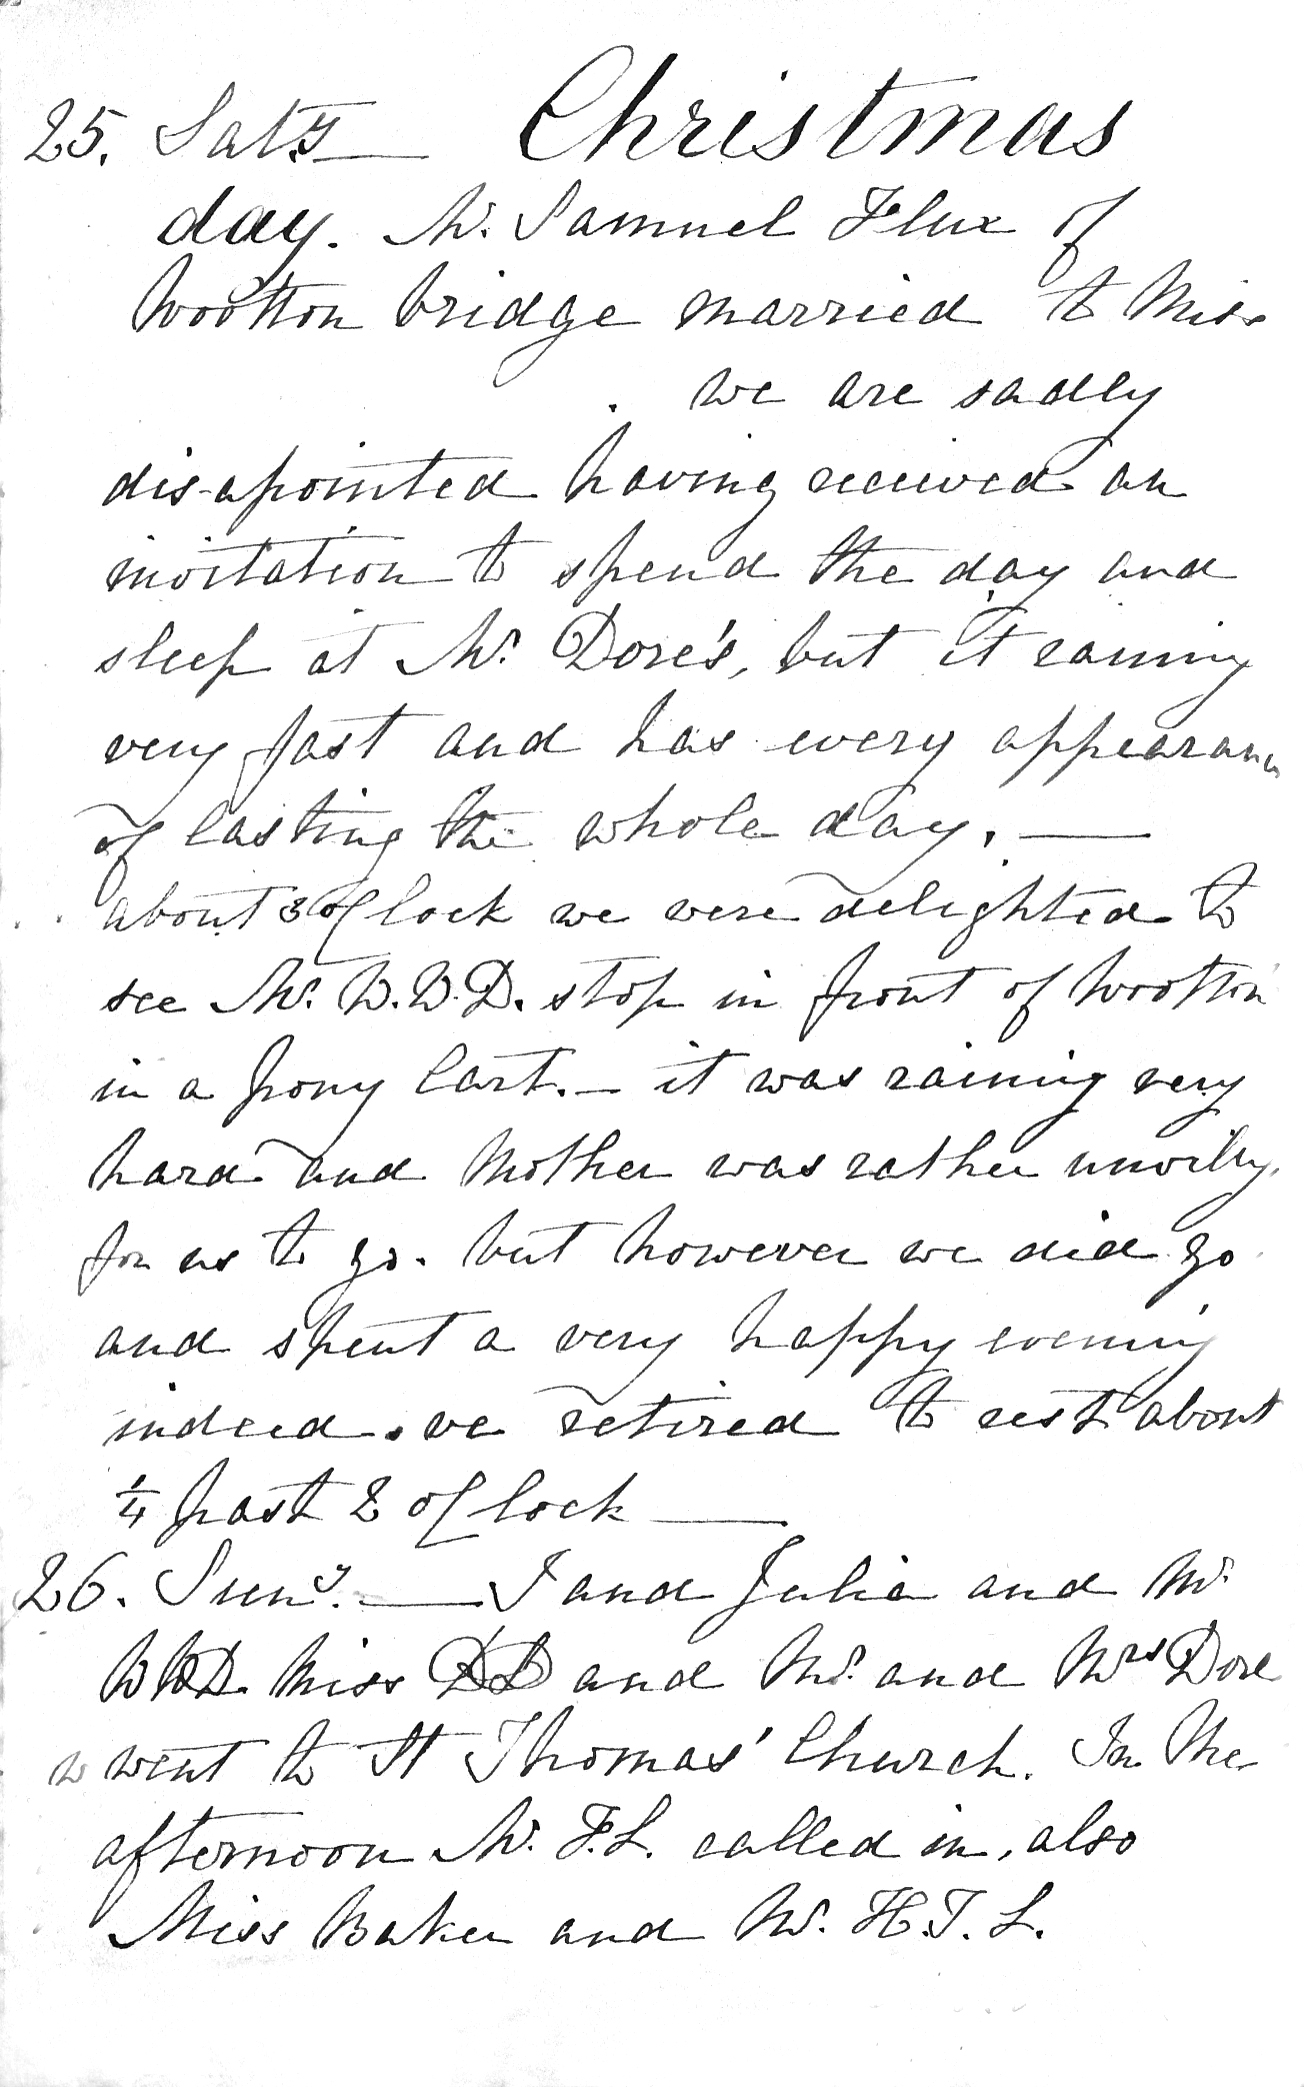 25. Saty — Christmas
day. Mr. Samuel Flux of
Wootton bridge married to Miss
. we are sadly
disapointed having received an
invitation to spend the day and
sleep at Mr. Dore's, but it raining
very fast and has every appearance
of lasting the whole day. —
about 3 o'Clock we were delighted to
see Mr. W.W.D. stop in front of Wootton
in a pony Cart. — it was raining very
hard and Mother was rather unwillg.
for us to go. but however we did go
and spent a very happy evening
indeed. we retired to rest about
1/4 past 2 o'Clock —
26. Suny. — I and Julia and Mr.
WWD. Miss and Mr. and Mrs Dore
went to St Thomas' Church. In the
afternoon Mr. F.L. called in, also
Miss Baker and Mr. H.T.L.